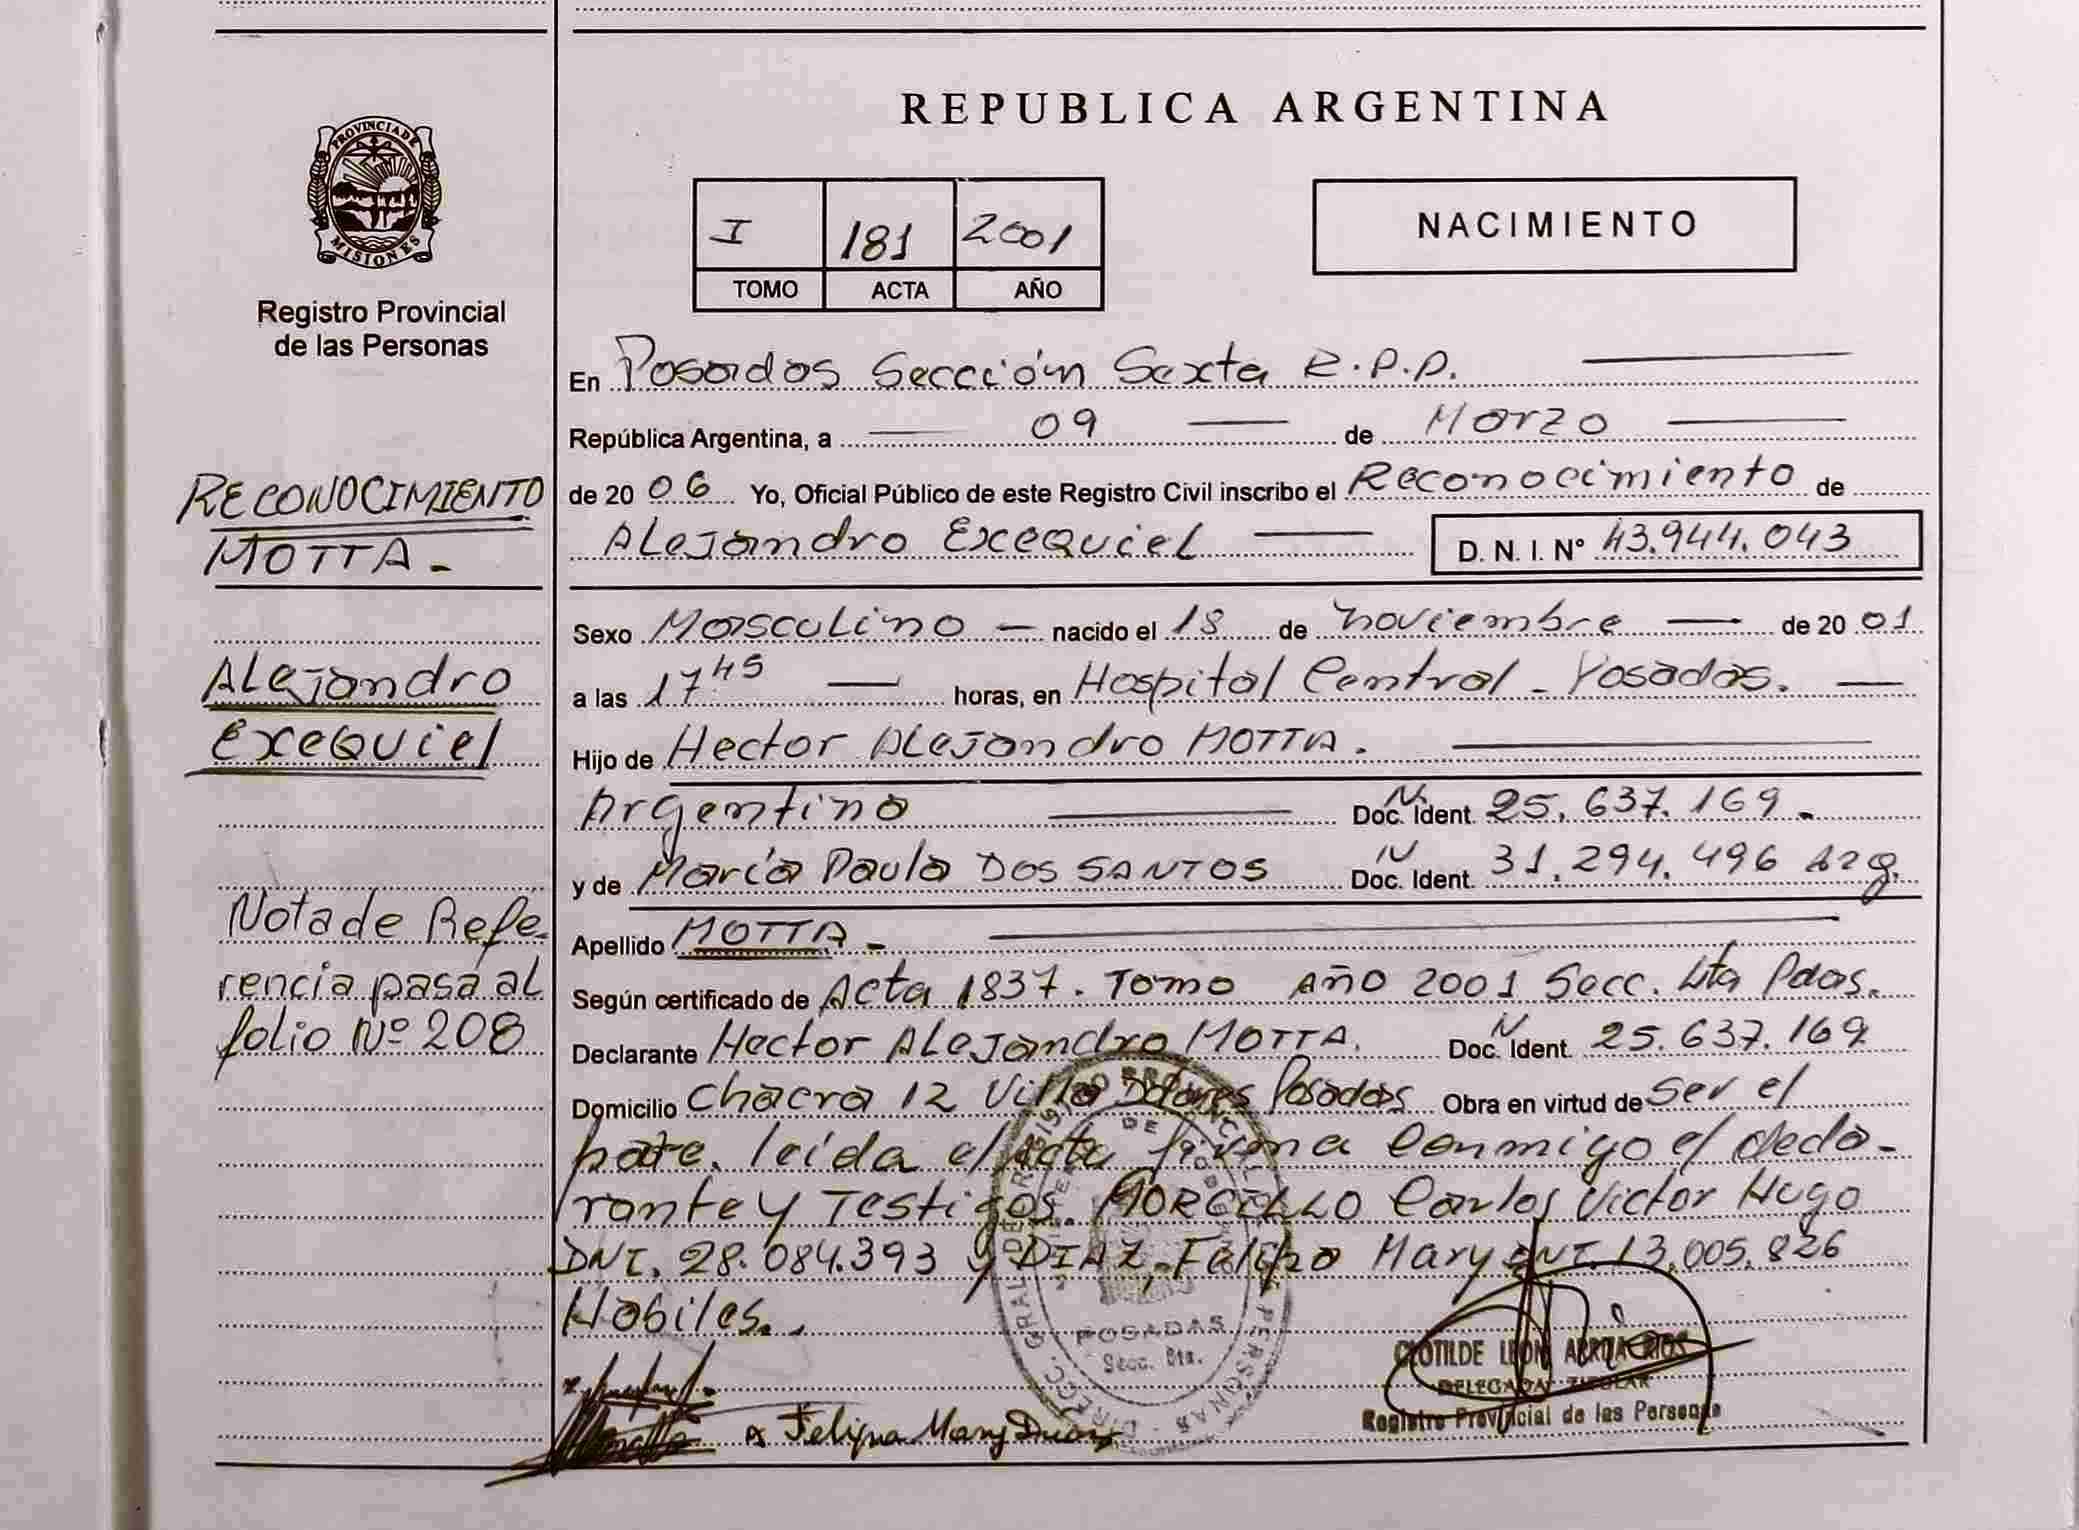 REPUBLICA ARGENTINA
PROVINCIA DE
MISIONES
Registro Provincial
de las Personas
I 181 2001
TOMO ACTA AÑO
NACIMIENTO
RECONOCIMIENTO
MOTTA.-
Alejandro
Exequiel
Nota de Refe-
rencia pasa al
folio Nº 208
En Posadas Sección Sexta R.P.P.
República Argentina, a 09 de Marzo
de 2006 Yo, Oficial Público de este Registro Civil inscribo el Reconocimiento de
Alejandro Exequiel D. N. I. Nº 43.944.043
Sexo Masculino nacido el 18 de noviembre de 2001
a las 17 45 horas, en Hospital Central - Posadas.
Hijo de Hector Alejandro MOTTA.
Argentino N. Doc. Ident. 25.637.169.-
y de María Paula DOS SANTOS N Doc. Ident. 31.294.496 Arg.
Apellido MOTTA.-
Según certificado de Acta 1837. Tomo Año 2001 Secc. 4ta Pdas.
Declarante Hector Alejandro MOTTA. N Doc. Ident. 25.637.169
Domicilio Chacra 12 Villa Dolores Posadas Obra en virtud de ser el
padre. leída el acta firma conmigo el decla-
rante y Testigos. MORCILLO Carlos Victor Hugo
DNI. 28.084.393 y DIAZ, Felipa Mary DNI. 13.005.826
Habiles..
POSADAS
Secc. 6ta.
x Felipa Mary Diaz
CLOTILDE LEON ARRÚA RIOS
DELEGADA TITULAR
Registro Provincial de las Personas